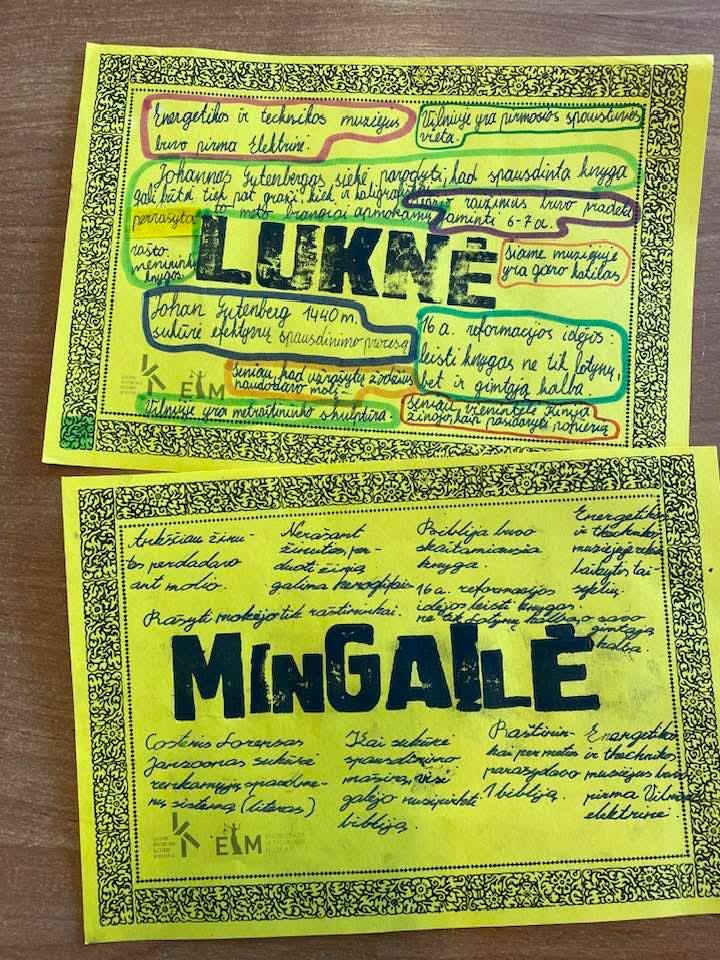 Energetikos ir technikos muziejus
buvo pirma elektrinė.
Vilniuje yra pirmosios spaustuvės
vieta.
Johannas Gutenbergas siekė parodyti, kad spausdinta knyga
gali būti tiek pat graži, kiek ir kaligrafiškai
perrašyta to meto brangiai apmokamų
rašto
menininkų
knygos.
raižinius buvo pradėta
gaminti 6-7 a.
LUKNĖ
Šiame muziejuje
yra garo katilas
Johan Gutenberg 1440 m.
sukūrė efektyvų spausdinimo procesą
16 a. reformacijos idėjos:
leisti knygas ne tik lotynų,
bet ir gimtąja kalba.
Seniau, kad užrašytų žodžius
naudodavo molį.
Vilniuje yra metraštininko skulptūra.
Seniau vienintelė Kinija
žinojo, kaip pasidaryti popierių
EM
Anksčiau žinu-
tes perdadavo
ant molio.
Nerašant
žinutes, per-
duoti žinią
galima
Biblija buvo
skaitomiausia
knyga.
Energetikos
ir technikos
muziejuje
laikytis tai-
syklių.
Rašyti mokėjo tik raštininkai.
16 a. reformacijos
idėjos leisti knygas
ne tik lotynų kalba, o savo
gimtąja
kalba.
MINGAILĖ
Costeris Lorensas
Janzoonas sukūrė
renkamųjų spausdme-
nų sistemą (literas)
Kai sukūrė
spausdinimo
mašiną, visi
galėjo nusipirkti
bibliją.
Raštinin-
kai per metus
parašydavo
1 bibliją.
Energetikos
ir thechnikos
muziejus buvo
pirma Vilniaus
elektrinė.
ETM